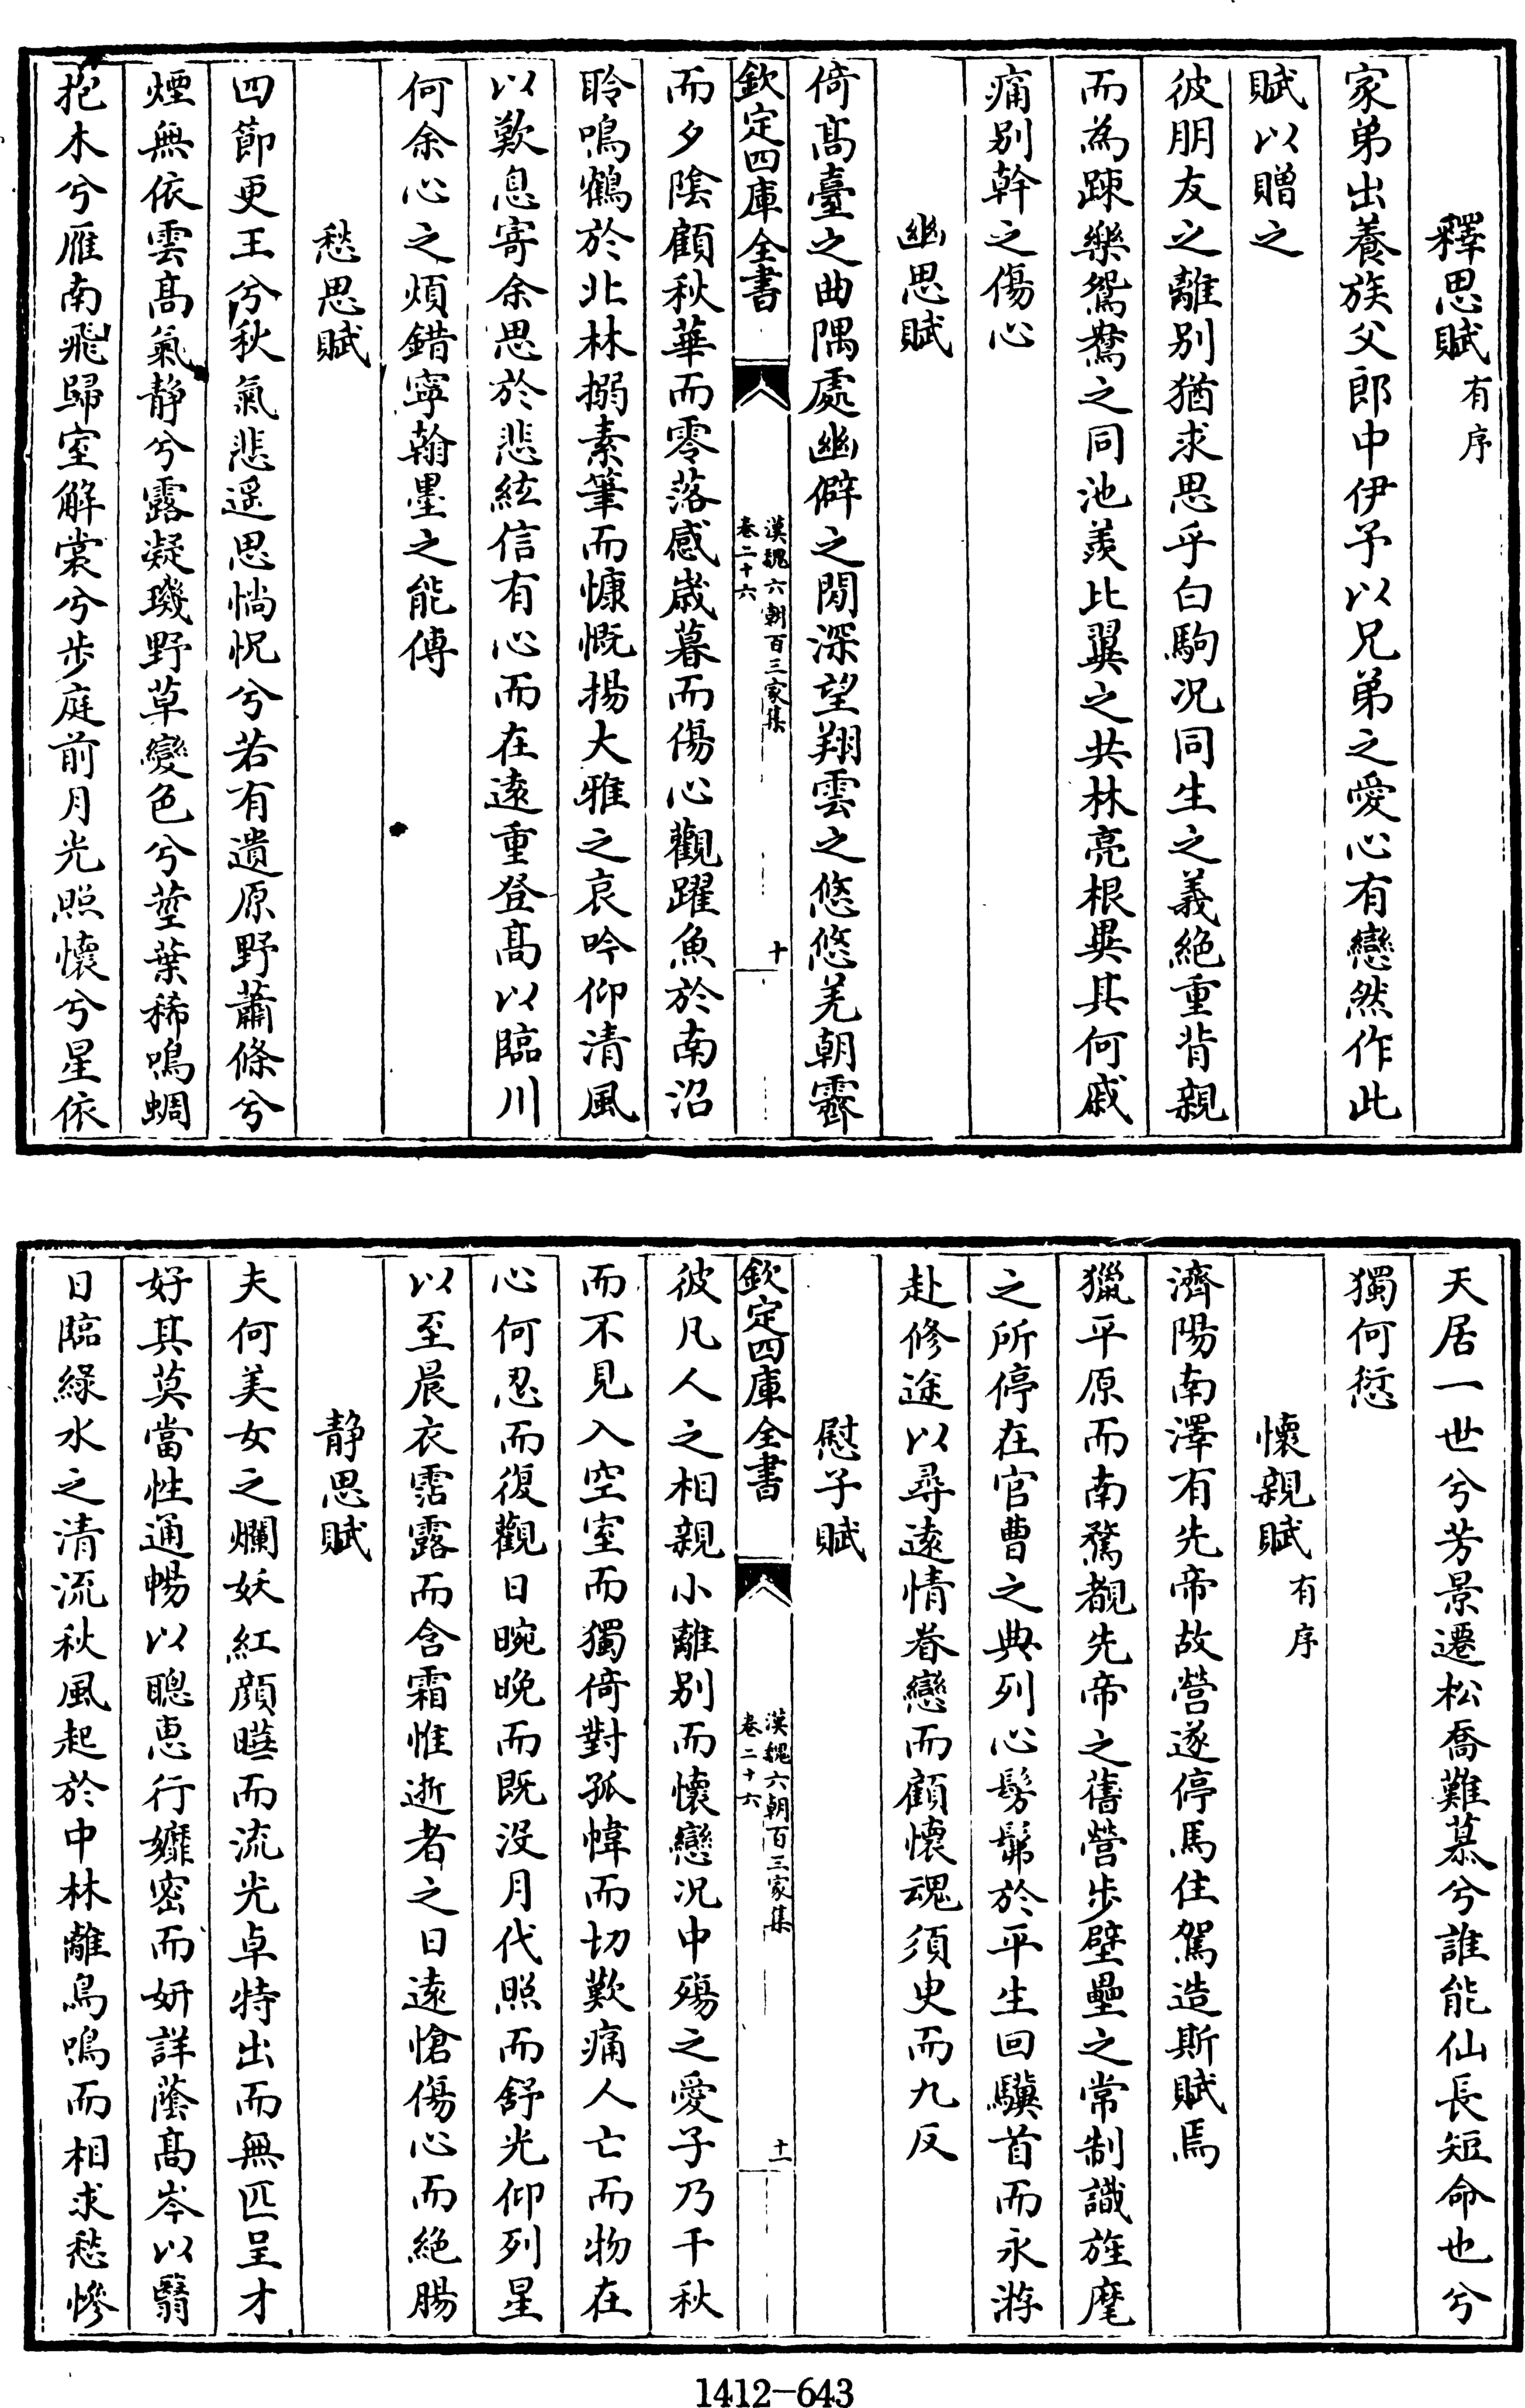 釋思賦有序
家弟出養族父郎中伊予以兄弟之愛心有戀然作此
賦以贈之
彼朋友之離别猶求思乎白駒况同生之義絶重背親
而為踈樂鴛鴦之同池羡比翼之共林亮根異其何戚
痛别幹之傷心
幽思賦
倚髙臺之曲隅處幽僻之閒深望翔雲之悠悠羌朝霽
欽定四庫全書
漢魏六朝百三家集
卷二十六
十
而夕隂顧秋華而零落感嵗暮而傷心觀躍魚於南沼
聆鳴鶴於北林搦素筆而慷慨揚大雅之哀吟仰清風
以歎息寄余思於悲絃信有心而在逺重登髙以臨川
何余心之煩錯寧翰墨之能傳
愁思賦
四節更王兮秋氣悲遥思惝怳兮若有遺原野蕭條兮
煙無依雲髙氣静兮露凝璣野草變色兮莖葉稀鳴蜩
抱木兮雁南飛歸室解裳兮步庭前月光照懷兮星依
天居一世兮芳景遷松喬難慕兮誰能仙長短命也兮
獨何愆
懷親賦有序
濟陽南澤有先帝故營遂停馬住駕造斯賦焉
獵平原而南騖覩先帝之舊營步壁壘之常制識旌麾
之所停在官曹之典列心髣髴於平生回驥首而永游
赴修途以尋逺情眷戀而顧懷魂須史而九反
慰子賦
彼凡人之相親小離别而懷戀况中殤之愛子乃千秋
欽定四庫全書
漢魏六朝百三家集
卷二十六
十一
而不見入空室而獨倚對孤幃而切歎痛人亡而物在
心何忍而復觀日晼晚而既没月代照而舒光仰列星
以至晨衣霑露而含霜惟逝者之日逺愴傷心而絶腸
静思賦
夫何美女之爛妖紅顔曄而流光卓特出而無匹呈才
好其莫當性通暢以聰恵行孊密而妍詳蔭髙岑以翳
日臨緑水之清流秋風起於中林離鳥鳴而相求愁慘
1412-643